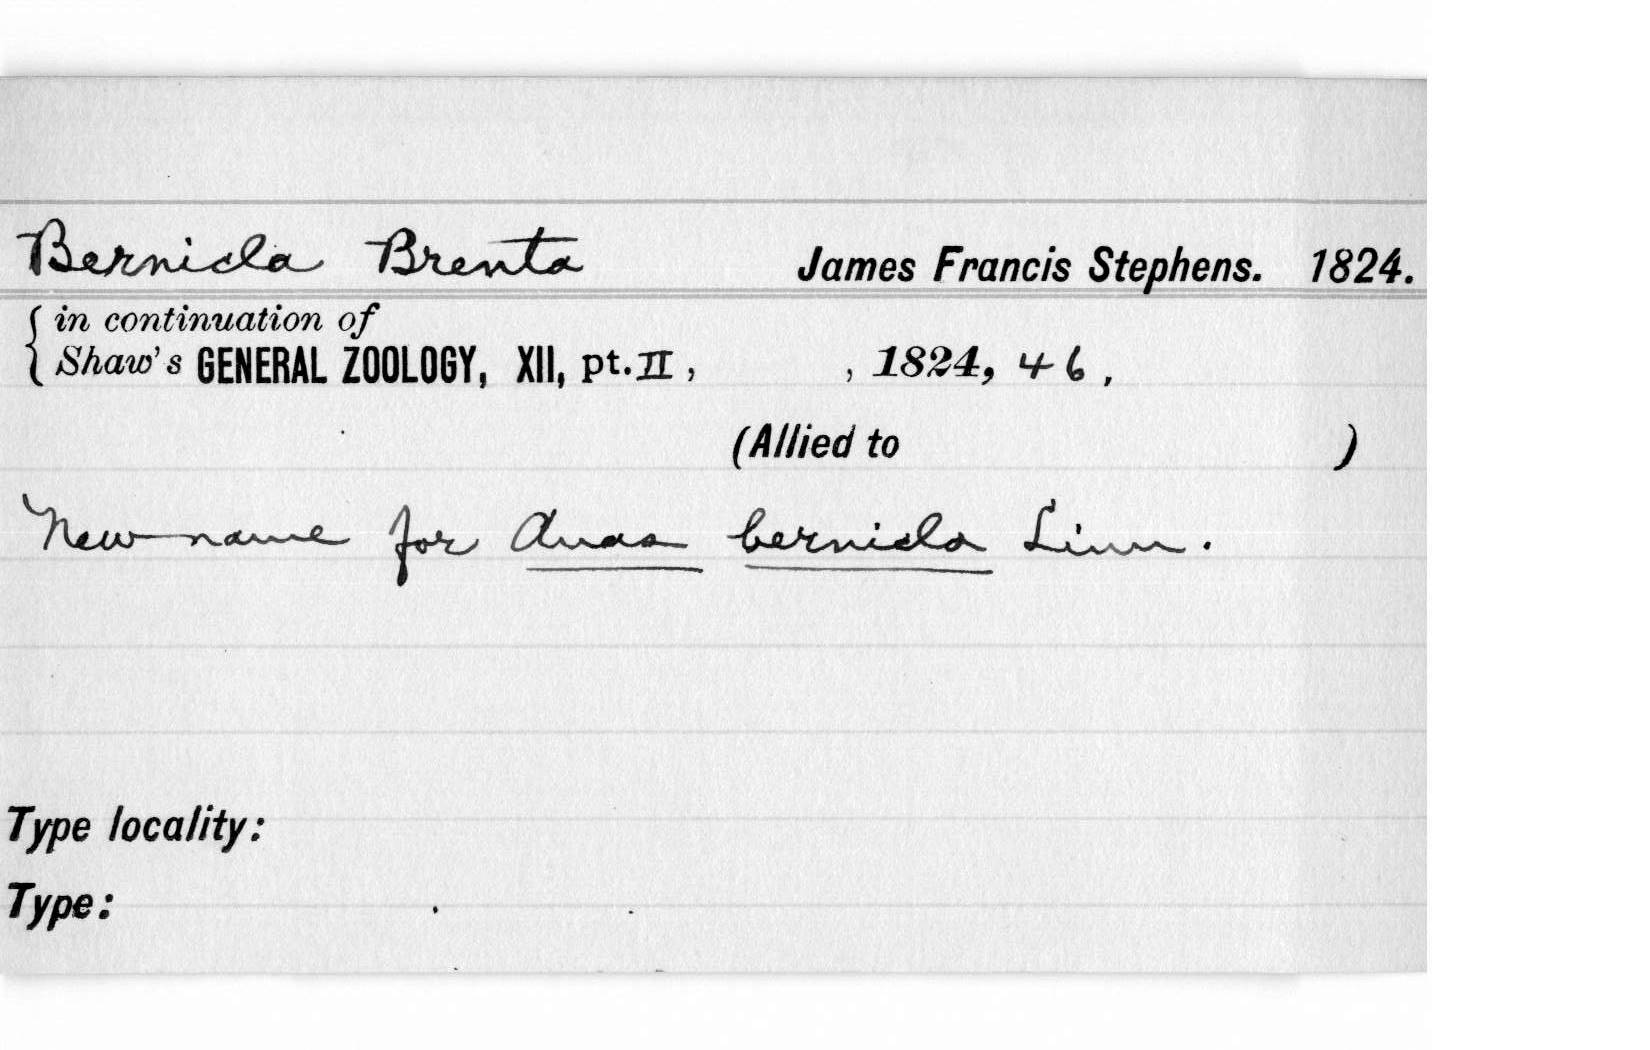 Bernicla Brenta James Francis Stephens. 1824.
in continuation of
Shaw's GENERAL ZOOLOGY, XII, pt. II, , 1824, 46,
(Allied to )
New name for Anas bernicla Linn.
Type locality:
Type: